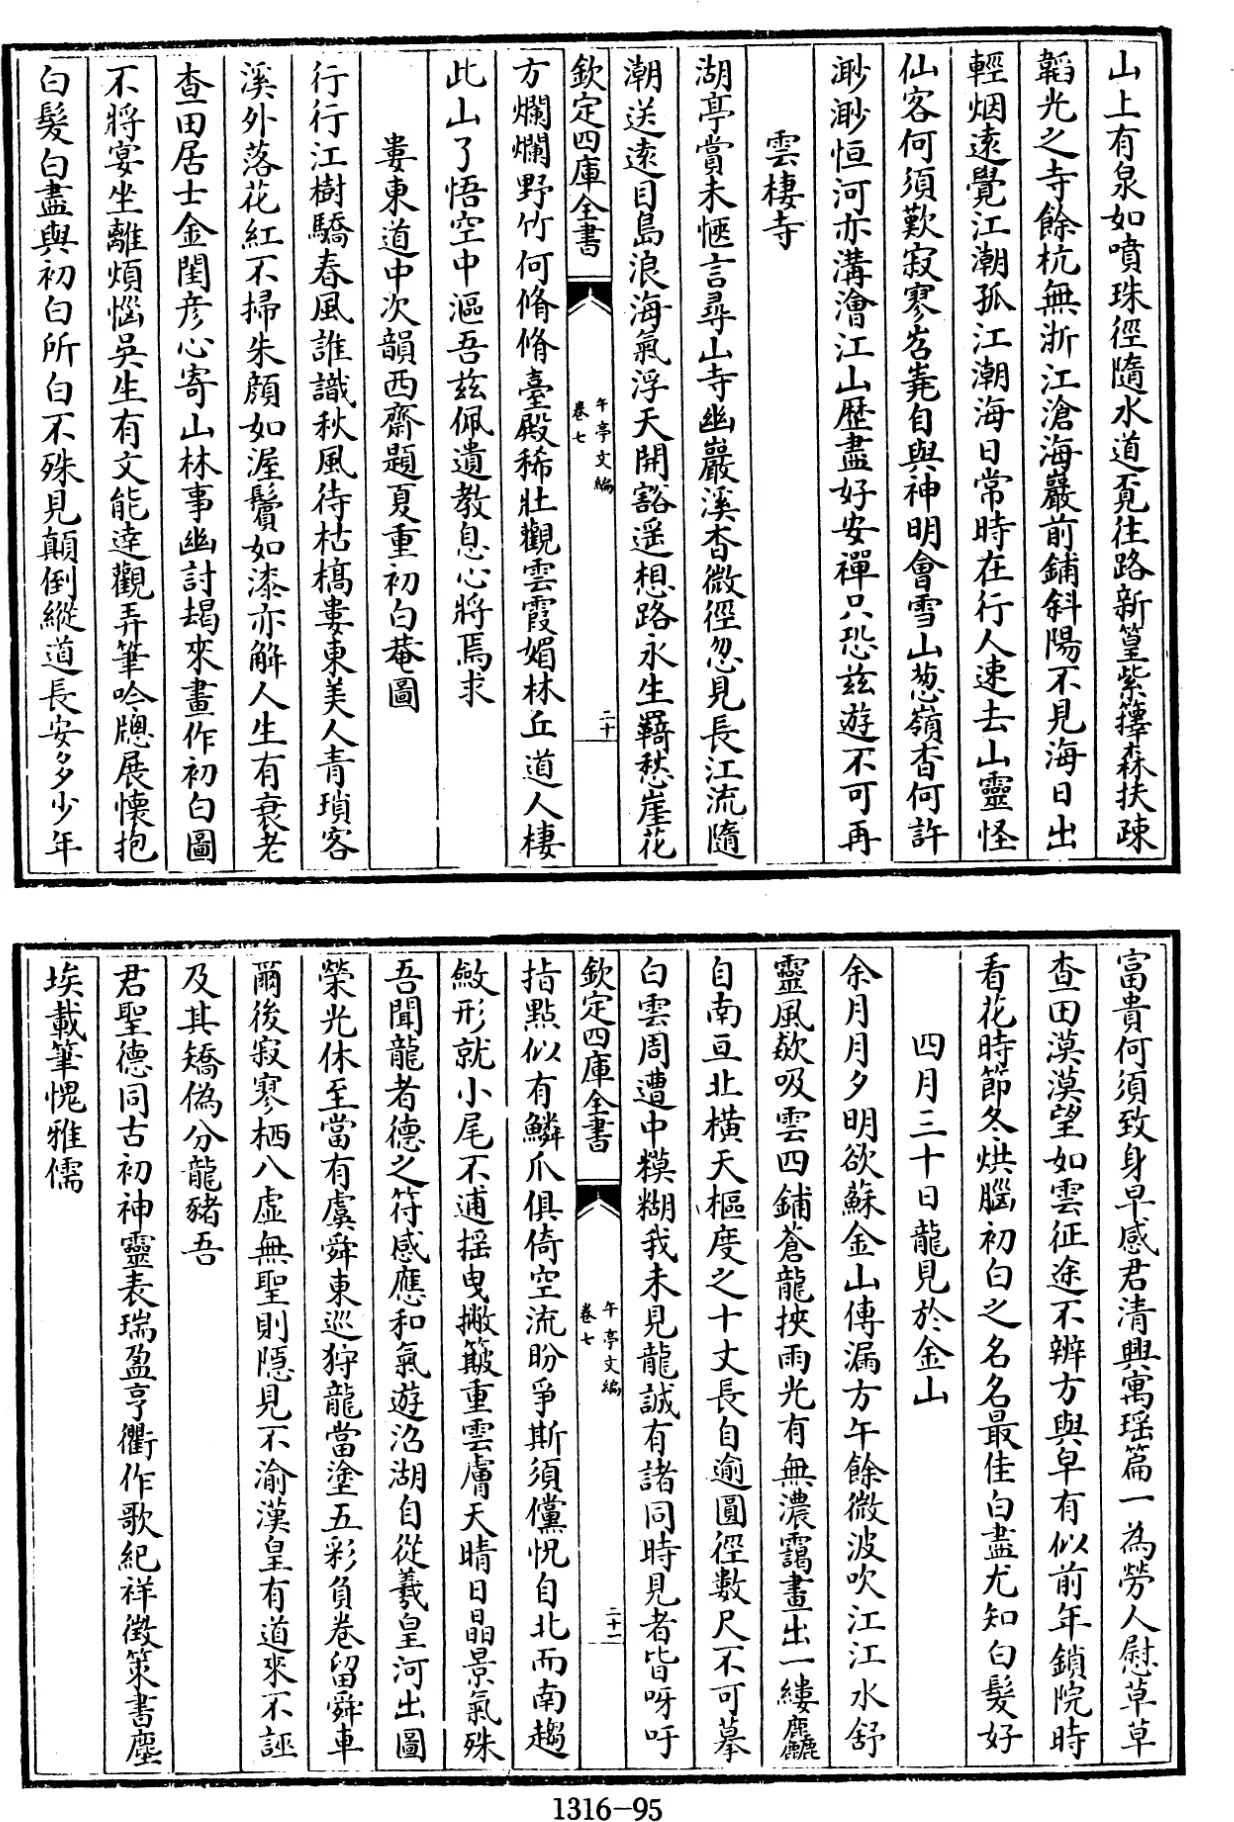 山上有泉如噴珠徑隨水道覔往路新篁紫籜森扶疎
韜光之寺餘杭無浙江滄海巖前鋪斜陽不見海日出
輕烟遠覺江潮孤江潮海日常時在行人速去山靈怪
仙客何須歎寂寥岧嶤自與神明會雪山葱嶺杳何許
渺渺恒河亦溝澮江山歴盡好安禪只恐兹遊不可再
雲棲寺
湖亭賞未愜言尋山寺幽巖溪杳微徑忽見長江流隨
潮送遠目島浪海氣浮天開豁遥想路永生羇愁崖花
欽定四庫全書
午亭文編
卷七
二十
方爛爛野竹何脩脩臺殿稀壯觀雲霞媚林丘道人棲
此山了悟空中漚吾兹佩遺教息心將焉求
婁東道中次韻西齋題夏重初白菴圖
行行江樹驕春風誰識秋風待枯槁婁東美人青瑣客
溪外落花紅不掃朱顔如渥鬢如漆亦解人生有衰老
查田居士金閨彦心寄山林事幽討朅來畫作初白圖
不將宴坐離煩惱吳生有文能達觀弄筆吟牕展懷抱
白髮白盡與初白所白不殊見顛倒縱道長安多少年
富貴何須致身早感君清興寓瑶篇一為勞人慰草草
查田漠漠望如雲征途不辨方與皁有似前年鎖院時
看花時節冬烘腦初白之名名最佳白盡尤知白髮好
四月三十日龍見於金山
余月月夕明欲蘇金山傳漏方午餘微波吹江江水舒
靈風欻吸雲四鋪蒼龍挾雨光有無濃靄畫出一縷麤
自南亘北横天樞度之十丈長自逾圓徑數尺不可摹
白雲周遭中糢糊我未見龍誠有諸同時見者皆呀吁
欽定四庫全書
午亭文編
卷七
二十一
指點似有鱗爪俱倚空流盼爭斯須儻怳自北而南趨
斂形就小尾不逋摇曳撇簸重雲膚天晴日晶景氣殊
吾聞龍者德之符感應和氣遊沼湖自從羲皇河出圖
榮光休至當有虞舜東巡狩龍當塗五彩負卷留舜車
爾後寂寥栖八虛無聖則隱見不渝漢皇有道來不誣
及其矯偽分龍豬吾
君聖德同古初神靈表瑞盈亨衢作歌紀祥徵策書塵
埃載筆愧雅儒
1316-95